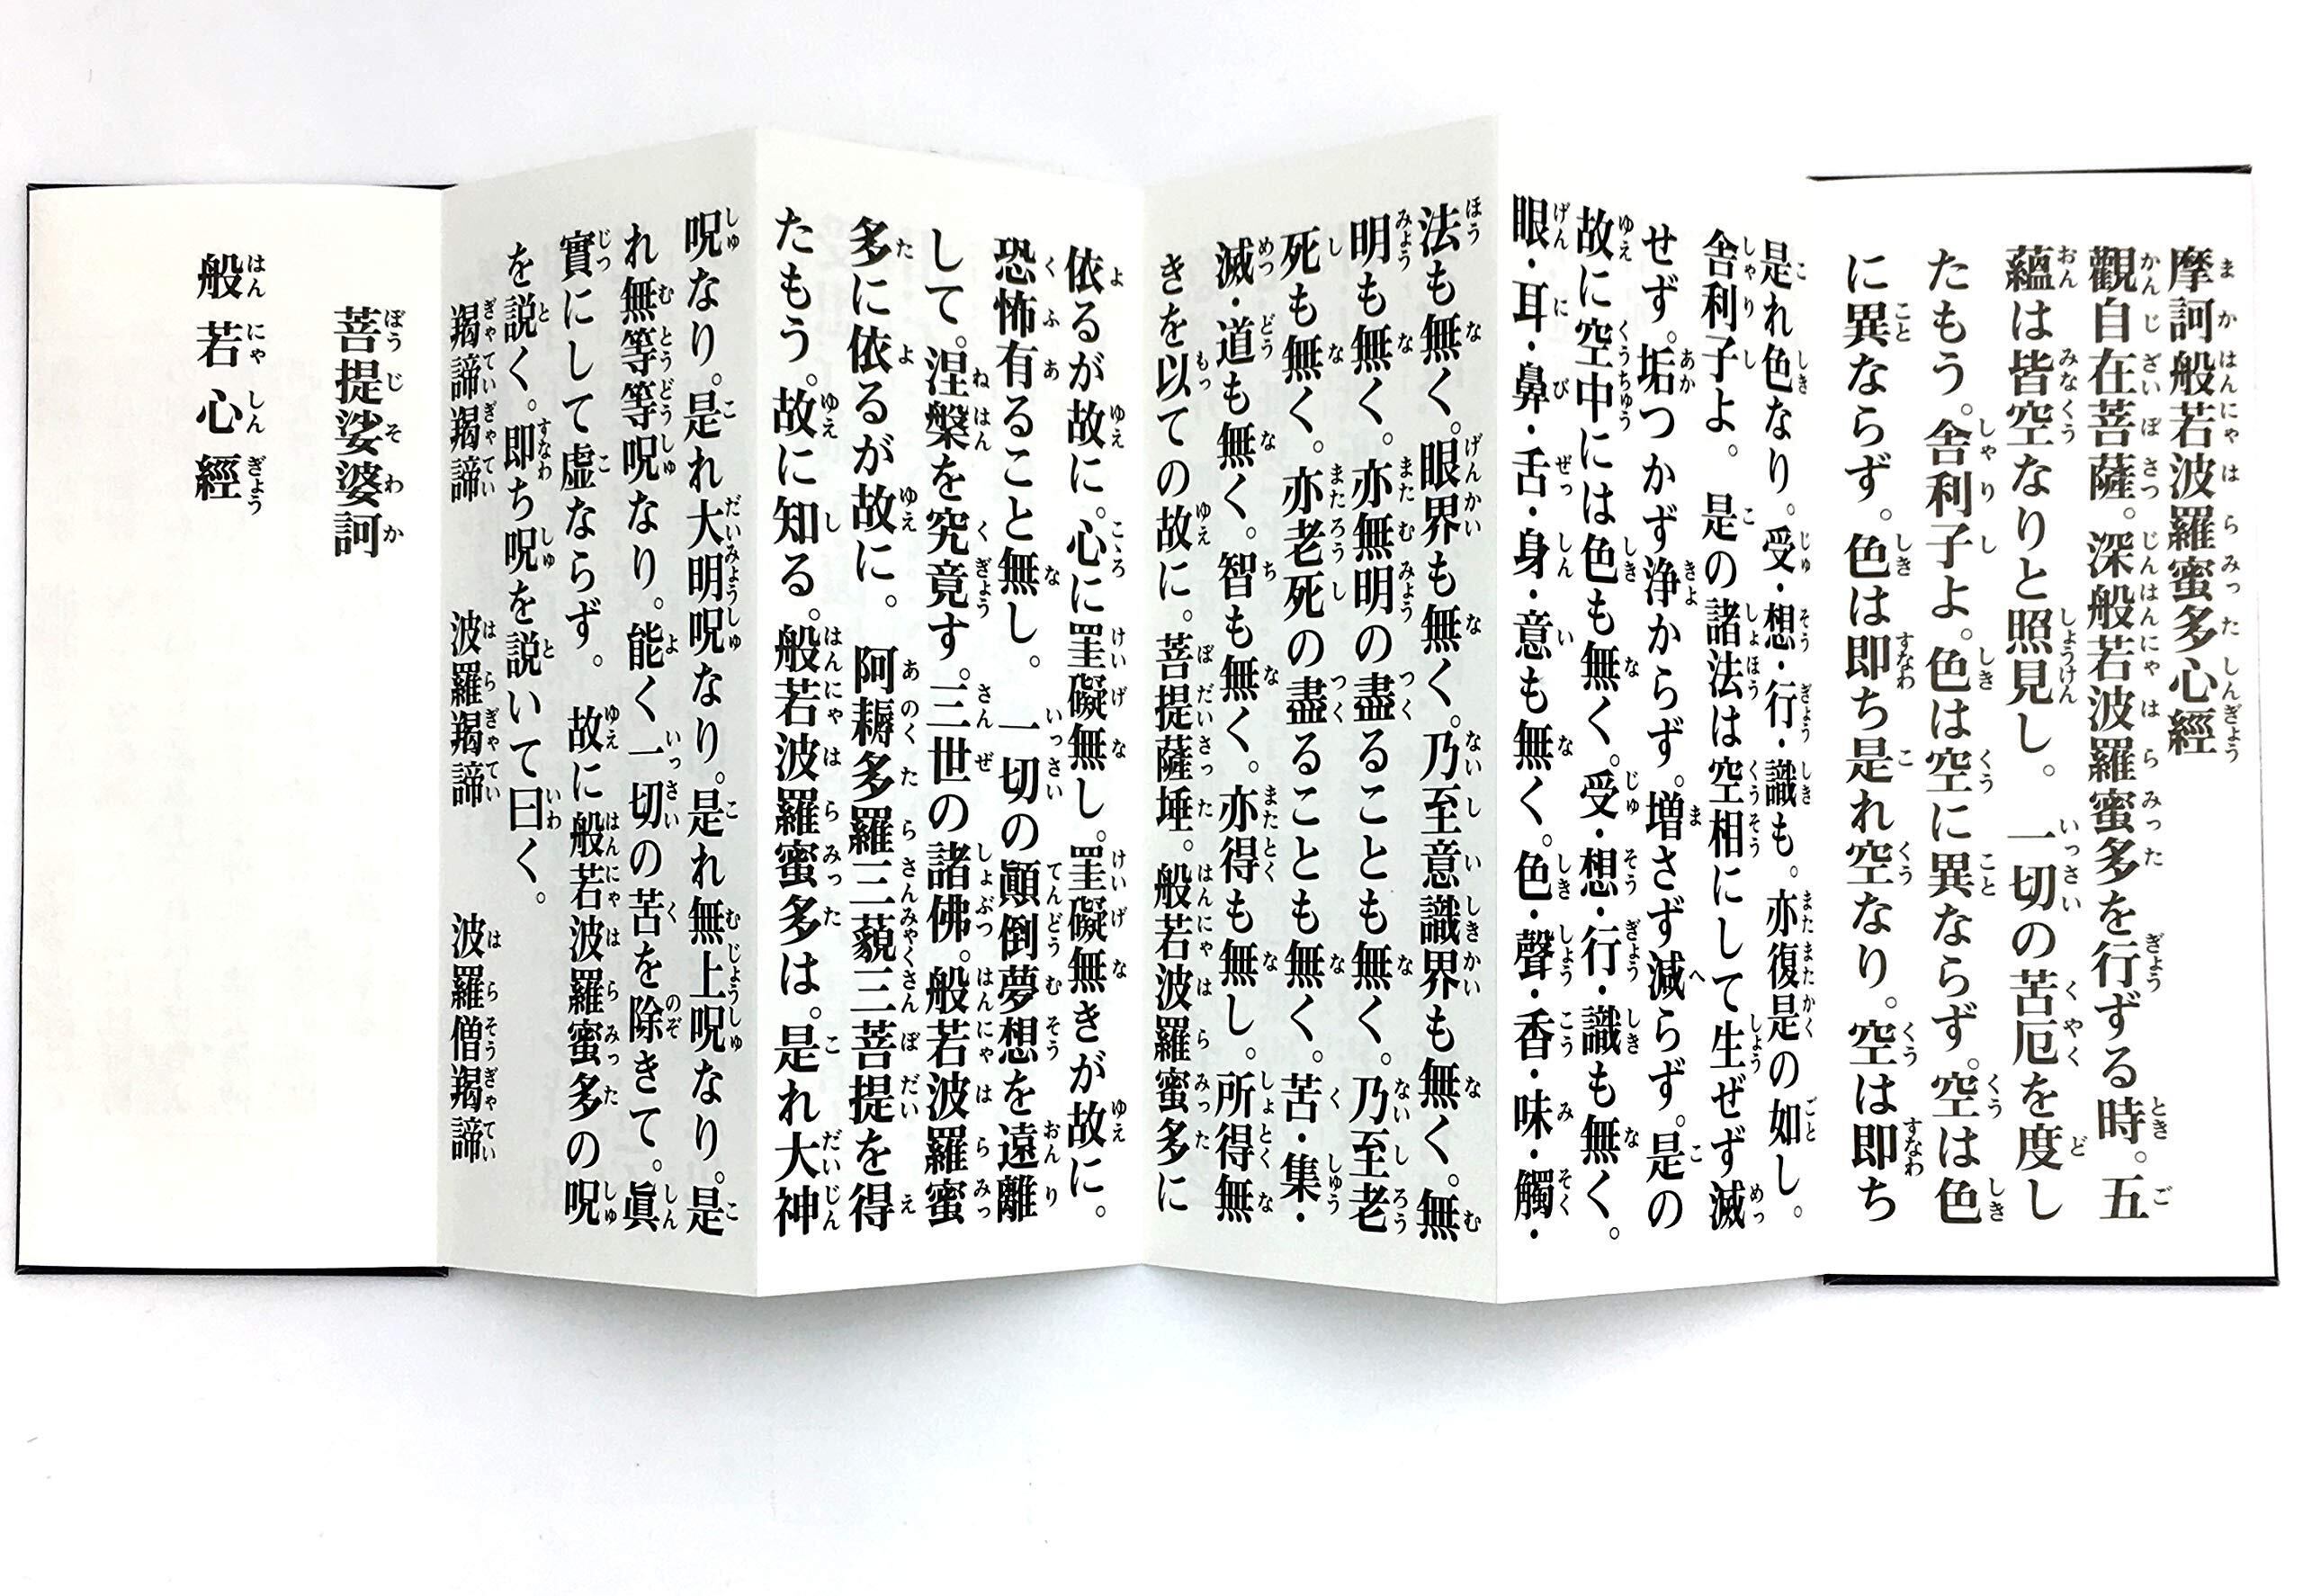 摩訶般若波羅蜜多心經
觀自在菩薩。深般若波羅蜜多を行ずる時。五
蘊は皆空なりと照見し。一切の苦厄を度し
たもう。舎利子よ。色は空に異ならず。空は色
に異ならず。色は即ち是れ空なり。空は即ち
是れ色なり。受・想・行・識も。亦復是の如し。
舎利子よ。是の諸法は空相にして生ぜず滅
せず。垢つかず浄からず。増さず減らず。是の
故に空中には色も無く。受・想・行・識も無く。
眼・耳・鼻・舌・身・意も無く。色・聲・香・味・觸・
法も無く。眼界も無く。乃至意識界も無く。無
明も無く。亦無明の盡ることも無く。乃至老
死も無く。亦老死の盡ることも無く。苦・集・
滅・道も無く。智も無く。亦得も無し。所得無
きを以ての故に。菩提薩埵。般若波羅蜜多に
依るが故に。心に罣礙無し。罣礙無きが故に。
恐怖有ること無し。一切の顚倒夢想を遠離
して。涅槃を究竟す。三世の諸佛。般若波羅蜜
多に依るが故に。阿耨多羅三藐三菩提を得
たもう。故に知る。般若波羅蜜多は。是れ大神
呪なり。是れ大明呪なり。是れ無上呪なり。是
れ無等等呪なり。能く一切の苦を除きて。眞
實にして虚ならず。故に般若波羅蜜多の呪
を説く。即ち呪を説いて曰く。
羯諦羯諦 波羅羯諦 波羅僧羯諦
菩提娑婆訶
般若心經